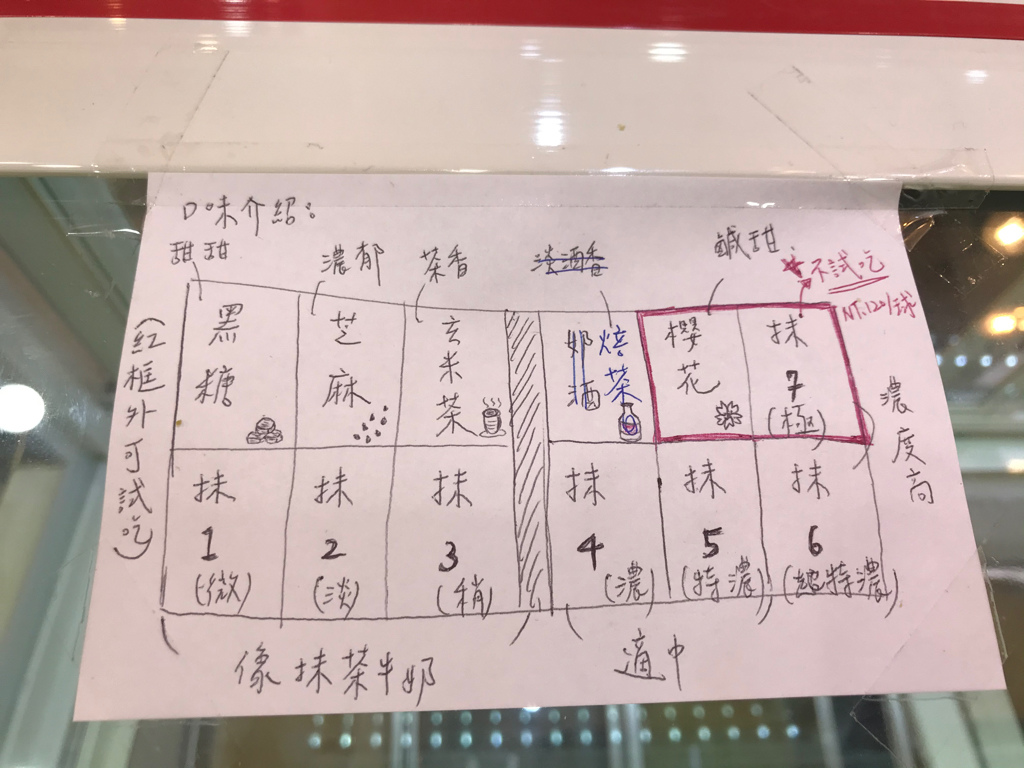 口味介紹:
甜甜
濃郁
茶香
淡酒香
鹹甜
不試吃
NT:122/球
(紅框外可試吃)
黑糖
芝麻
玄米茶
奶酒
焙茶
櫻花
抹7(極)
濃度高
抹1(微)
抹2(淡)
抹3(稍)
抹4(濃)
抹5(特濃)
抹6(超特濃)
像抹茶牛奶
適中